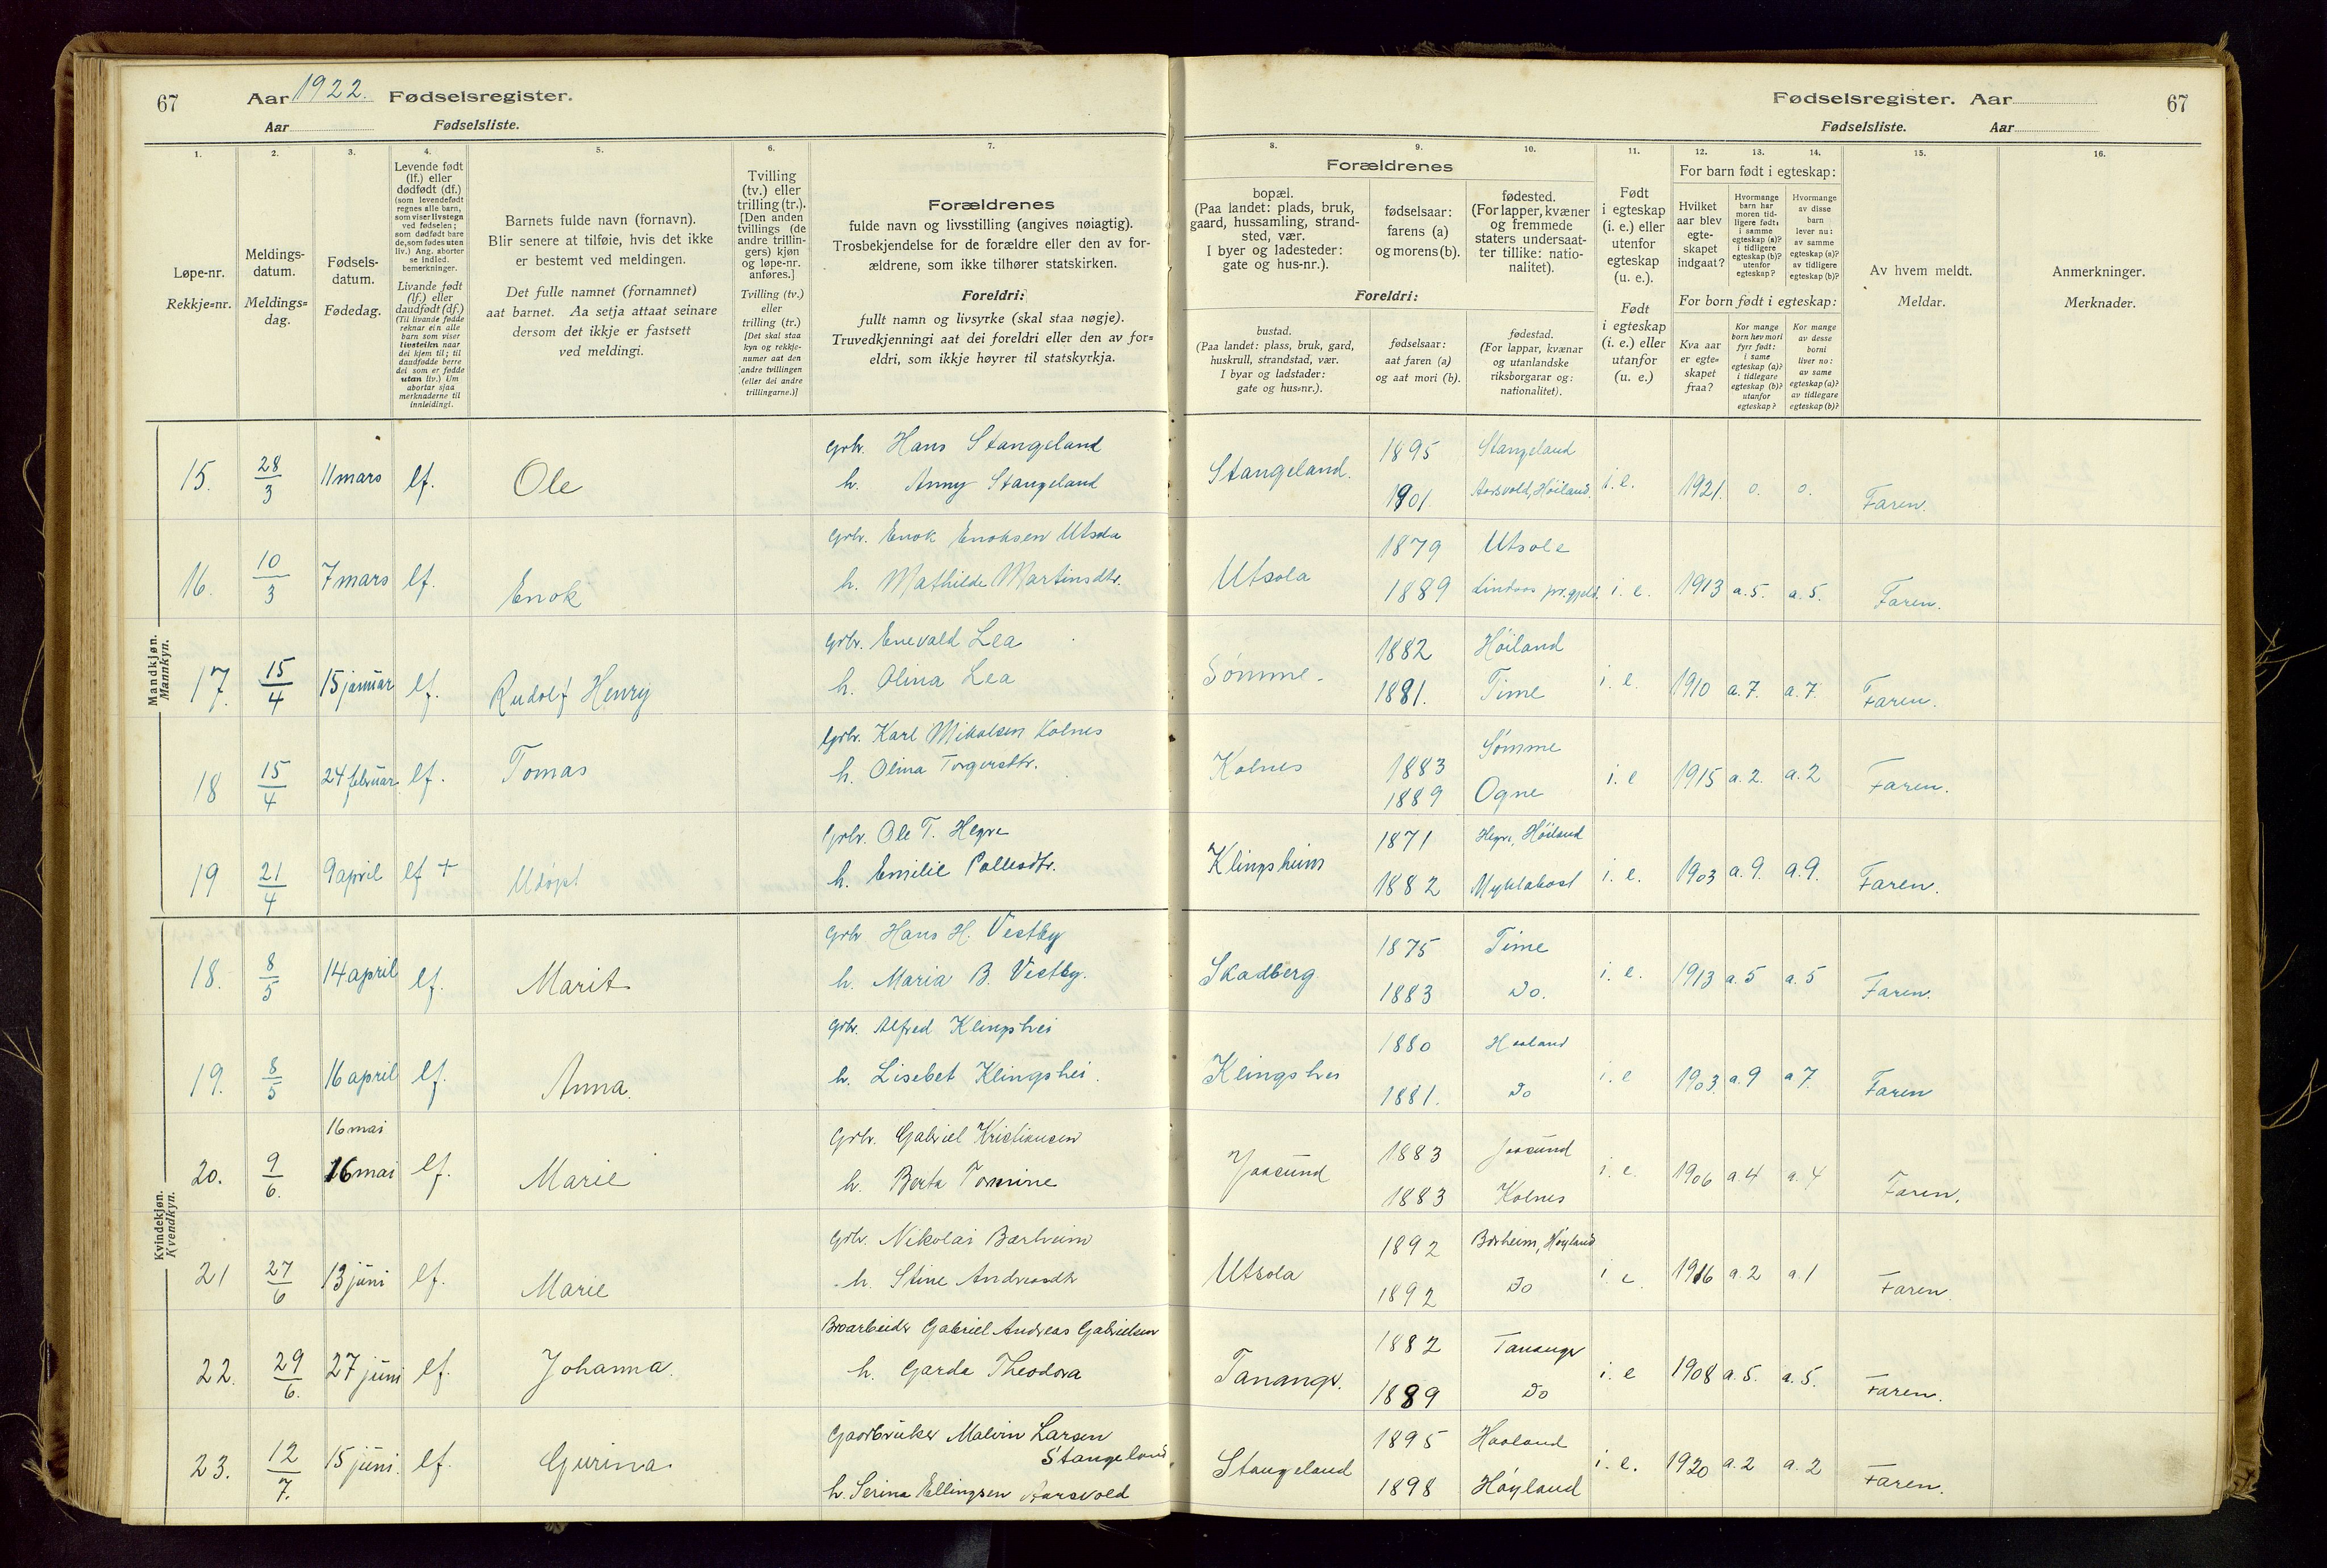 67 Aar 1922. Fødselsregister.
Aar Fødselsliste.
Fødselsregister. Aar 67
Fødselsliste. Aar
1. 2. 3. 4. 5. 6. 7.
Løpe-nr.
Rekkje=nr.
Meldings-
datum.
Meldings=
dag.
Fødsels-
datum.
Fødedag.
Levende født
(lf.) eller
dødfødt (df.)
(som levendefødt
regnes alle barn,
som viser livstegn
ved fødselen;
som dødfødt bare
de, som fødes uten
liv.) Ang. aborter
se indled.
bemerkninger.
Livande født
(lf.) eller
daudfødt (df.)
(Til livande fødde
reknar ein alle
barn som viser
livsteikn naar
dei kjem til; til
daudfødde berre
dei som er fødde
utan liv.) Um
abortar sjaa
merknaderne til
innleidingi.
Barnets fulde navn (fornavn).
Blir senere at tilføie, hvis det ikke
er bestemt ved meldingen.
Det fulle namnet (fornamnet)
aat barnet. Aa setja attaat seinare
dersom det ikkje er fastsett
ved meldingi.
Tvilling
(tv.) eller
trilling (tr.).
[Den anden
tvillings (de
andre trillin-
gers) kjøn
og løpe-nr.
anføres.]
Tvilling (tv.)
eller
trilling (tr.)
[Det skal staa
kyn og rekkje-
numer aat den
andre tvillingen
(eller dei andre
trillingarne.)]
Forældrenes
fulde navn og livsstilling (angives nøiagtig).
Trosbekjendelse for de forældre eller den av for-
ældrene, som ikke tilhører statskirken.
Foreldri:
fullt namn og livsyrke (skal staa nøgje).
Truvedkjenningi aat dei foreldri eller den av for=
eldri, som ikkje høyrer til statskyrkja.
8. 9. 10. 11. 12. 13. 14. 15. 16.
Forældrenes
bopæl.
(Paa landet: plads, bruk,
gaard, hussamling, strand-
sted, vær.
I byer og ladesteder:
gate og hus-nr.).
fødselsaar:
farens (a)
og morens (b).
fødested.
(For lapper, kvæner
og fremmede
staters undersaat-
ter tillike: natio-
nalitet).
Foreldri:
bustad.
(Paa landet: plass, bruk, gard,
huskrull, strandstad, vær.
I byar og ladstader:
gate og hus=nr.).
fødselsaar:
aat faren (a)
og aat mori (b).
fødestad.
(For lappar, kvænar
og utanlandske
riksborgarar og:
nationalitet).
Født
i egteskap
(i. e.) eller
utenfor
egteskap
(u. e.).
Født
i egteskap
(i. e.) eller
utanfor
(u. e.)
For barn født i egteskap:
Hvilket
aar blev
egte-
skapet
indgaat?
Hvormange
barn har
moren tid-
ligere født:
i samme
egteskap (a)?
i tidligere
egteskap (b)?
utenfor
egteskap?
Hvormange
av disse
barn
lever nu:
av samme
egteskap (a)?
av tidligere
egteskap (b)?
For born født i egteskap:
Kva aar
er egte=
skapet
fraa?
Kor mange
born hev mori
fyrr født:
i same
egteskap (a)?
i tidlegare
egteskap (b)?
utanfor
egteskap?
Kor mange
av desse
borni
liver no:
av same
egteskap (a)?
av tidlegare
egteskap (b)?
Av hvem meldt.
Meldar.
Anmerkninger.
Merknader.
Mandkjøn.
Mannkyn.
Grbr. Hans Stangeland 1895 Stangeland
15. 28/3 11 mars lf. Ole h. Anny Stangeland Stangeland. 1901. Aarsvold, Høiland. i. e. 1921. 0. 0. Faren.
Grbr. Enok Enoksen Utsola 1879 Utsola
16. 10/3 7 mars lf. Enok h. Mathilde Martinsdtr. Utsola 1889 Lindaas pr.gjeld. i. e. 1913 a. 5. a. 5. Faren.
Grbr. Enevald Lea 1882 Høiland
17. 15/4 15 januar lf. Rudolf Henry h. Olina Lea Sømme. 1881. Time i. e. 1910 a. 7. a. 7. Faren.
Grbr. Karl Mikalsen Kolnes 1883 Sømme
18 15/4 24 februar lf. Tomas h. Olina Torgersdtr. Kolnes 1889 Ogne i. e 1915 a. 2. a. 2 Faren.
Grbr. Ole T. Hegre 1871 Hegre, Høiland
19 21/4 9 april lf + Udøpt h. Emilie Pallesdtr. Klingsheim 1882 Myklabost i. e. 1903 a. 9. a. 9. Faren.
Kvindekjøn.
Kvendkyn.
Grbr Hans H. Vestby 1875 Time
18. 8/5 14 april lf. Marit h. Maria B. Vestby. Skadberg 1883 Do. i. e. 1913 a. 5 a. 5 Faren.
Grbr. Alfred Klingshei 1880 Haaland
19. 8/5 16 april lf. Anna. h. Lisebet Klingshei. Klingshei 1881. Do i. e 1903. a. 9 a 7. Faren
16 mai Grbr. Gabriel Kristiansen 1883 Jaasund
20. 9/6. 16 mai lf. Marie h. Berta Tomine Jaasund 1883 Kolnes i. e. 1906 a. 4 a. 4 Faren.
Grbr. Nikolai Barheim 1892 Barheim, Høyland
21 27/6 13 juni lf. Marie h. Stine Andreasdtr Utsola 1892 Do i. e. 1916 a. 2 a. 1 Faren.
Broarbeider Gabriel Andreas Gabrielsen 1882 Tananger
22. 29/6. 27 juni lf. Johanna. h. Garda Theodora Tananger. 1889 Do i. e 1908 a. 5. a. 5. Faren.
Gaardbruker Malvin Larsen 1895 Haaland
Stangeland
23. 12/7. 15 juni. lf. Gurina. h. Serina Ellingsen Aarsvold Stangeland 1898 Høyland i. e. 1920 a. 2 a. 2 Faren.